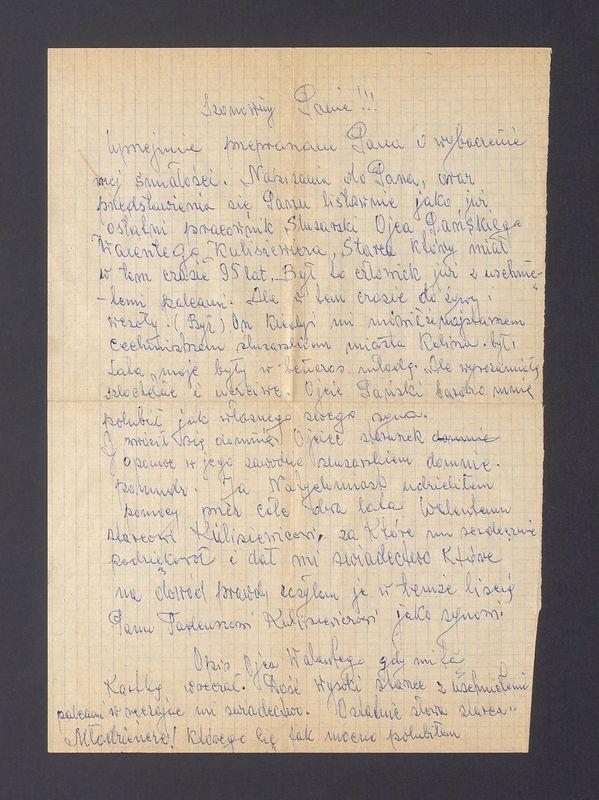 Szanowny Panie!!!
Uprzejmie przepraszam Pana o wybaczenie
mej śmiałości. Napisania do Pana, oraz
przedstawienia się Panu listownie jako już
ostatni pracownik Slusarski Ojca Pańskiego
Walentego Kulisiewicza, Starca który miał
w tem czasie 95 lat. Był to człowiek już z uschnię-
-temi palcami. Ale w tem czasie do żywy i
wesoły. (Był) On kiedyś mi mówił że najstarszem
cechmistrzem slusarskiem miasta Kalisza był,
Lata moje były w tenczas młode. Ale wyrozumiały
szlachetne i uczciwe Ojciec Pański bardzo mnie
polubił jak własnego swego syna.
I zwrócił się domnie Ojciec staruszek domnie
O pomoc w jego zawodzie slusarskiem domnie.
Ja Natychmiast udzieliłem
pomocy przez całe dwa lata Walentemu
starcowi Kulisiewicowi, za Które mi serdecznie
podziękował i dał mi świadectwo Które
na dowód prawdy wsyłam je w temże liście
Panu Tadeuszowi Kulisiewiczowi jako synowi.
Opis Ojca Walentego gdy mi tą
Kartkę wręczał. Dość wysoki starzec z uschniętemi
palcami wręczając mi swiadectwo. Ostatnie słowa starca..
Młodzieńcze! którego Cię tak mocno polubiłem